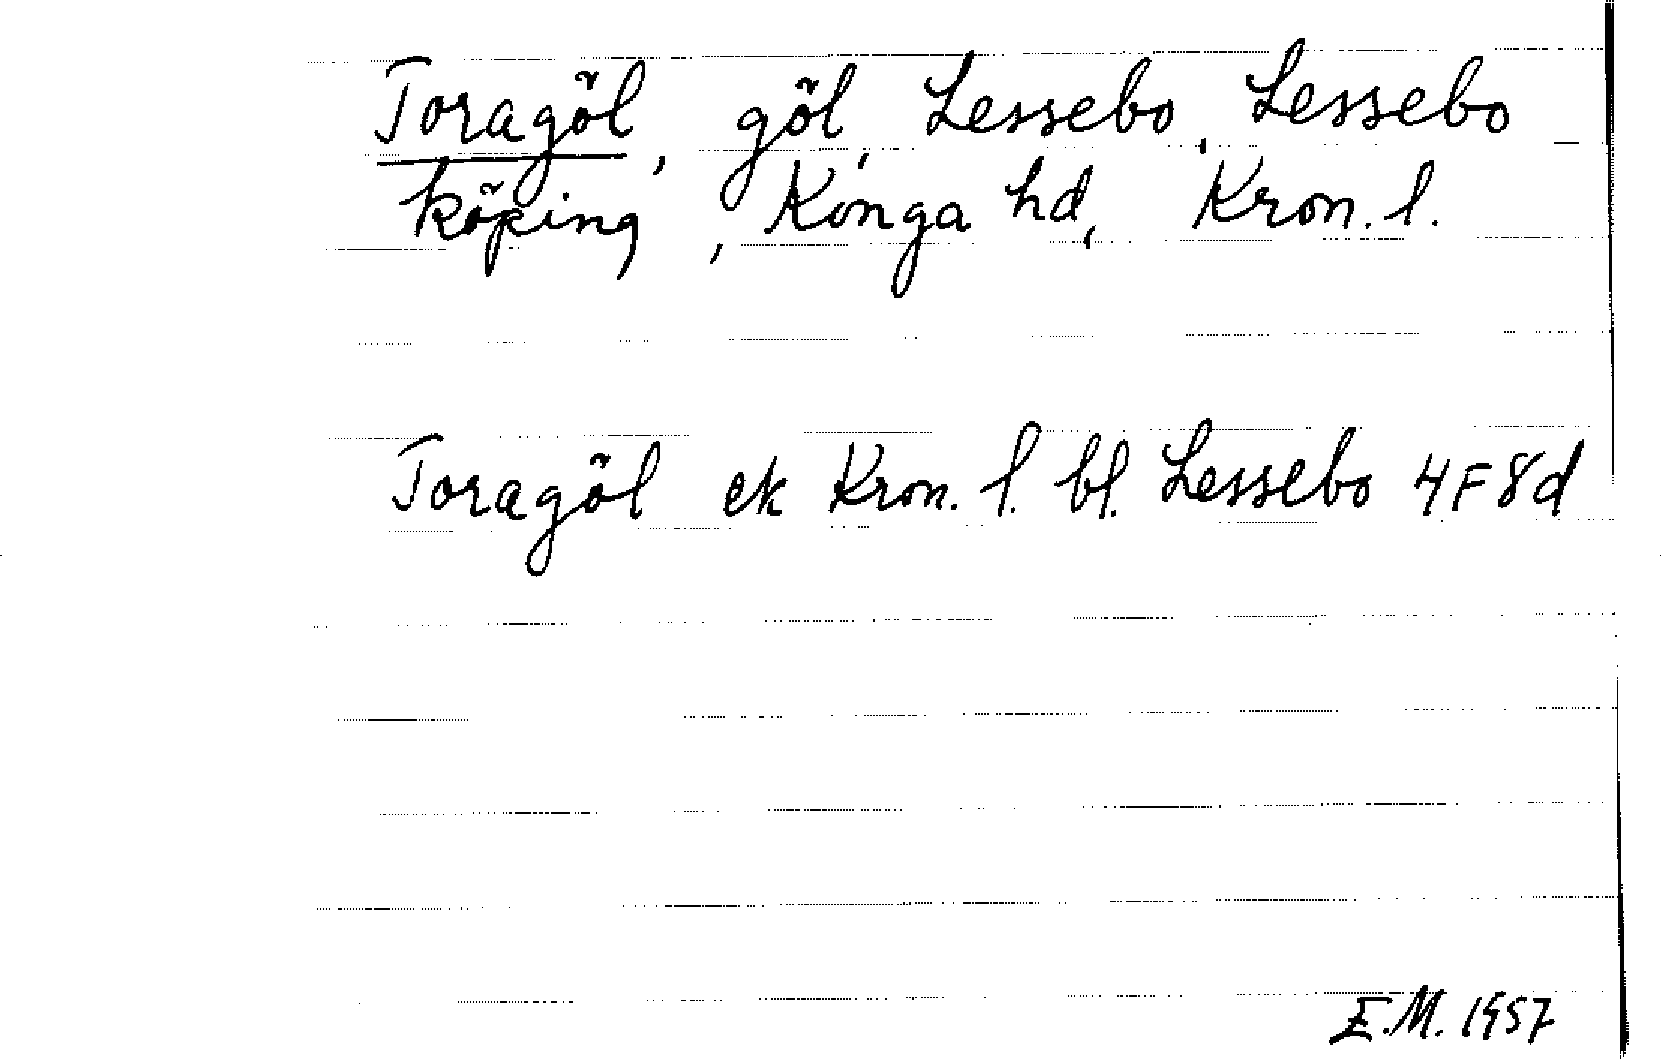 Toragöl, göl, Lessebo, Lessebo
köping, Konga hd, Kron. l.
Toragöl ek Kron. l. bl. Lessebo 4F8d
E.M. 1957